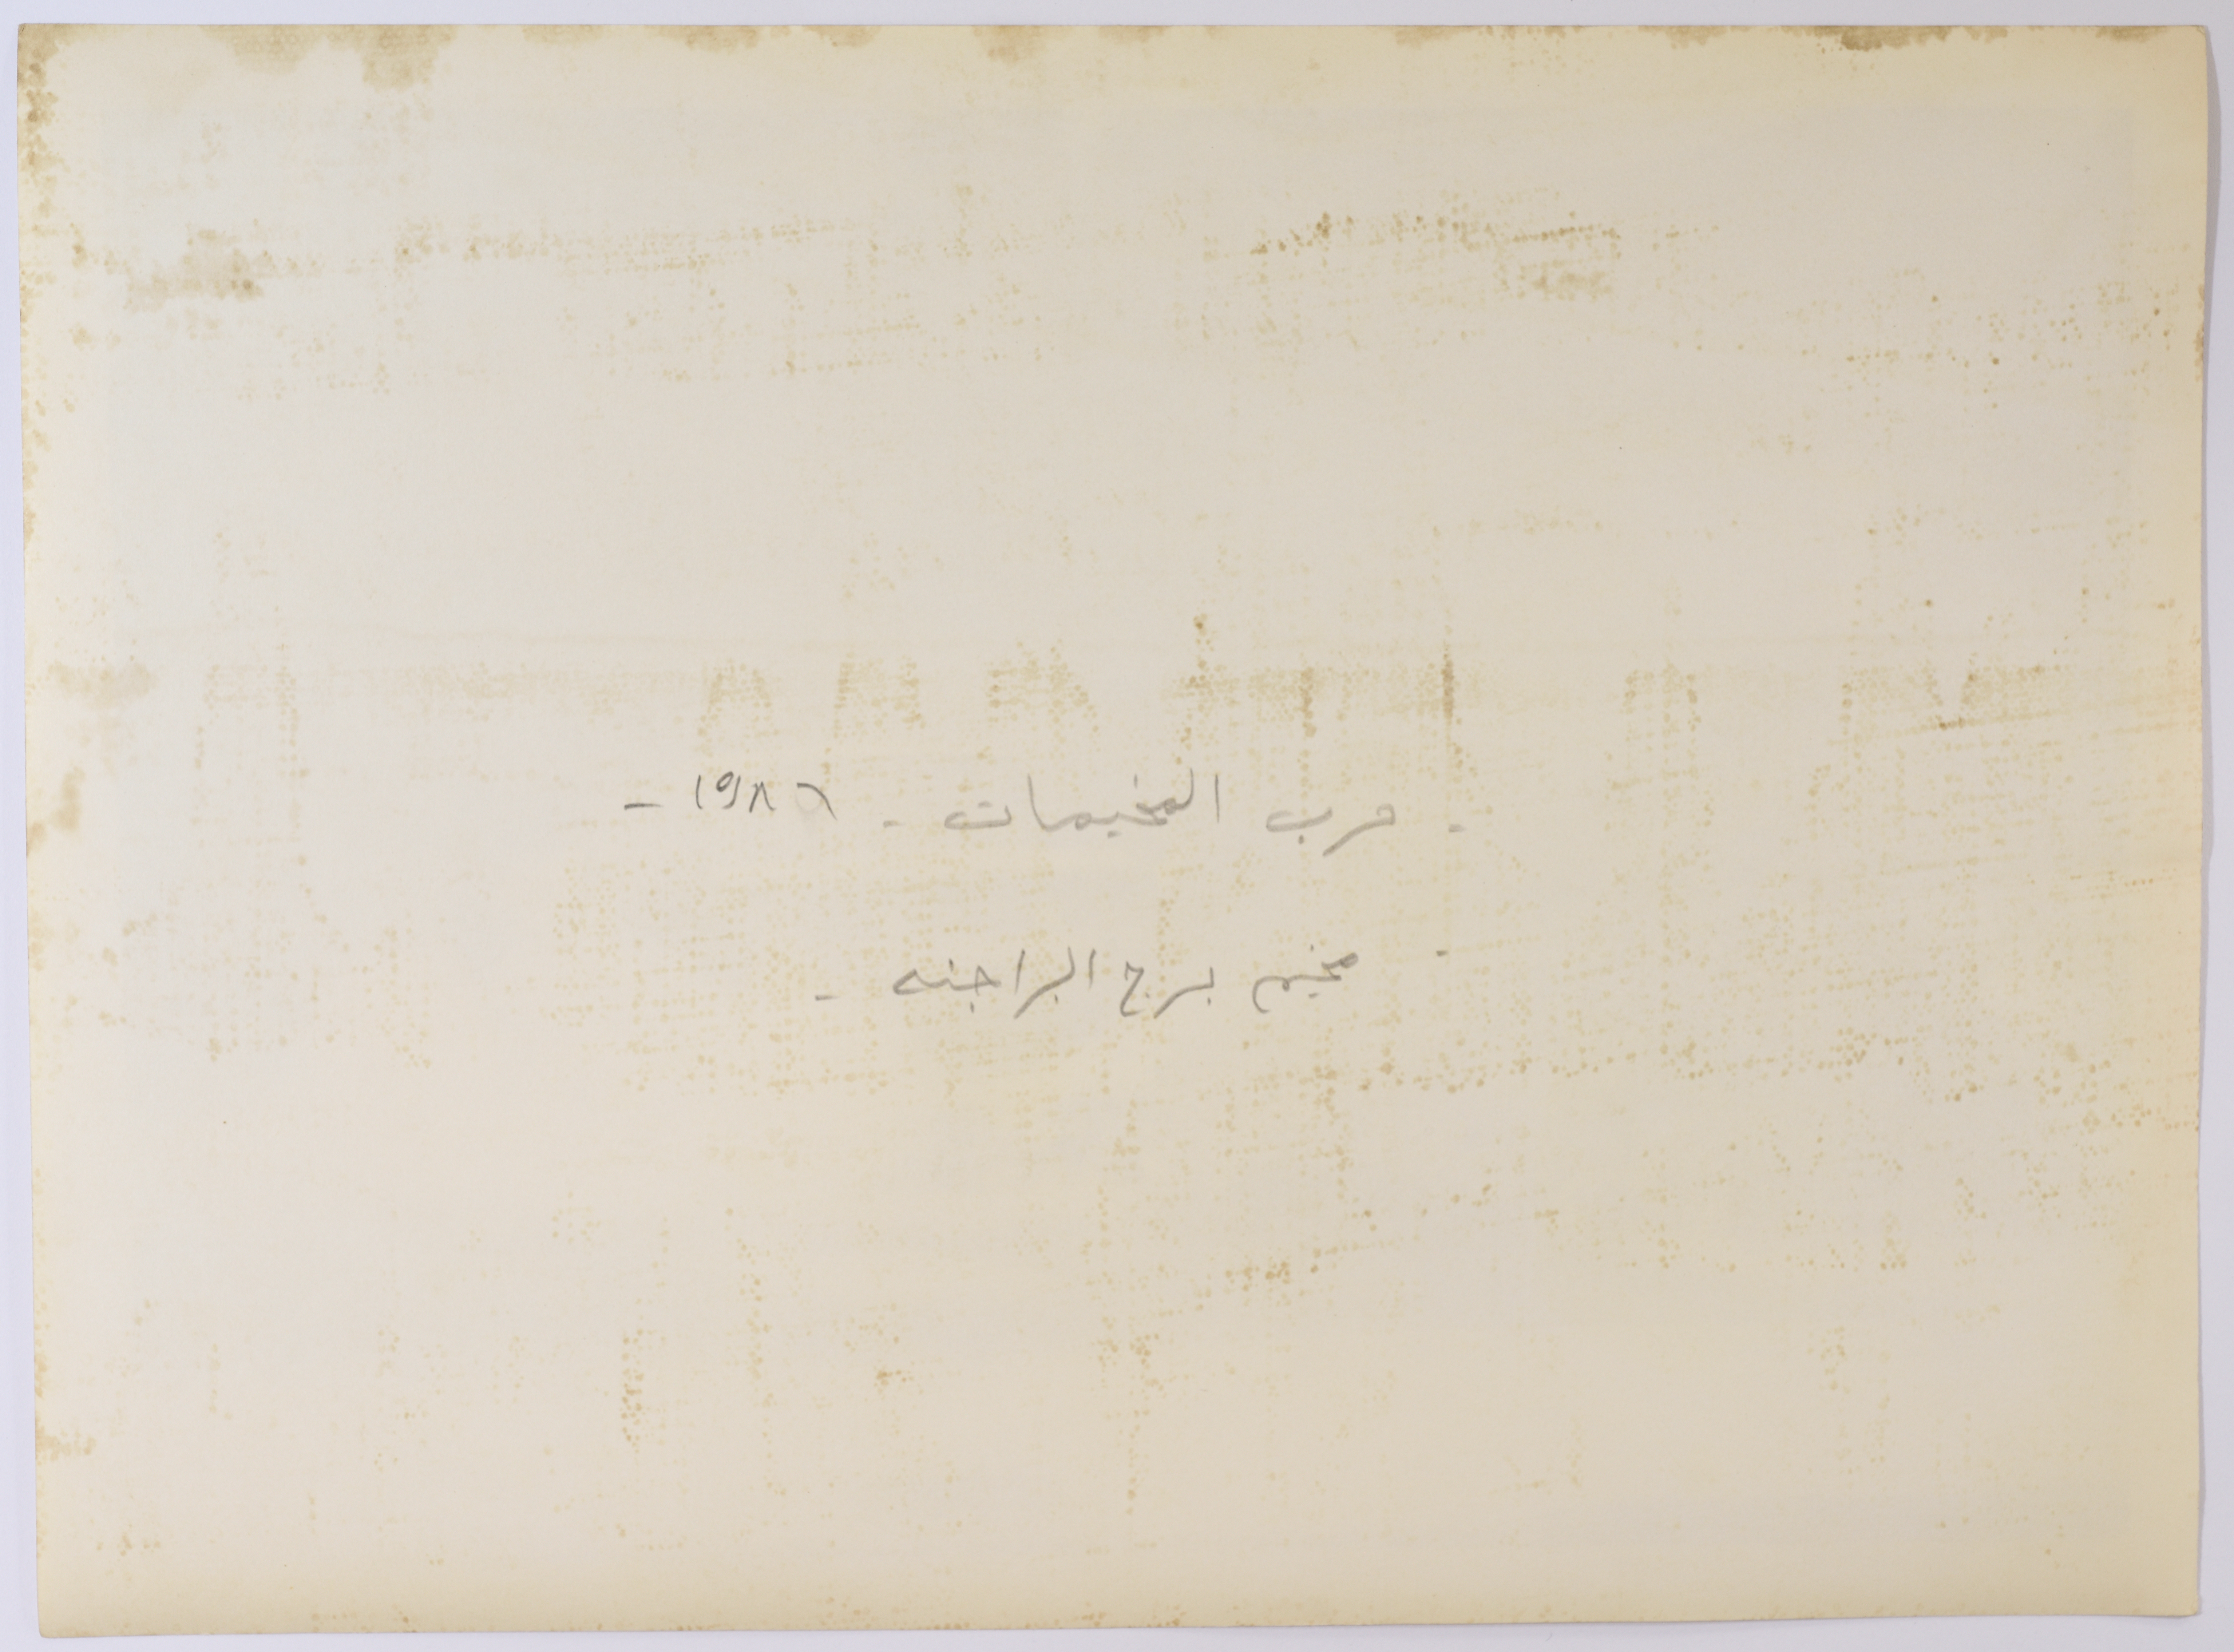 - حرب المخيمات - ١٩٨٦ -
- مخيم برج البراجنه -